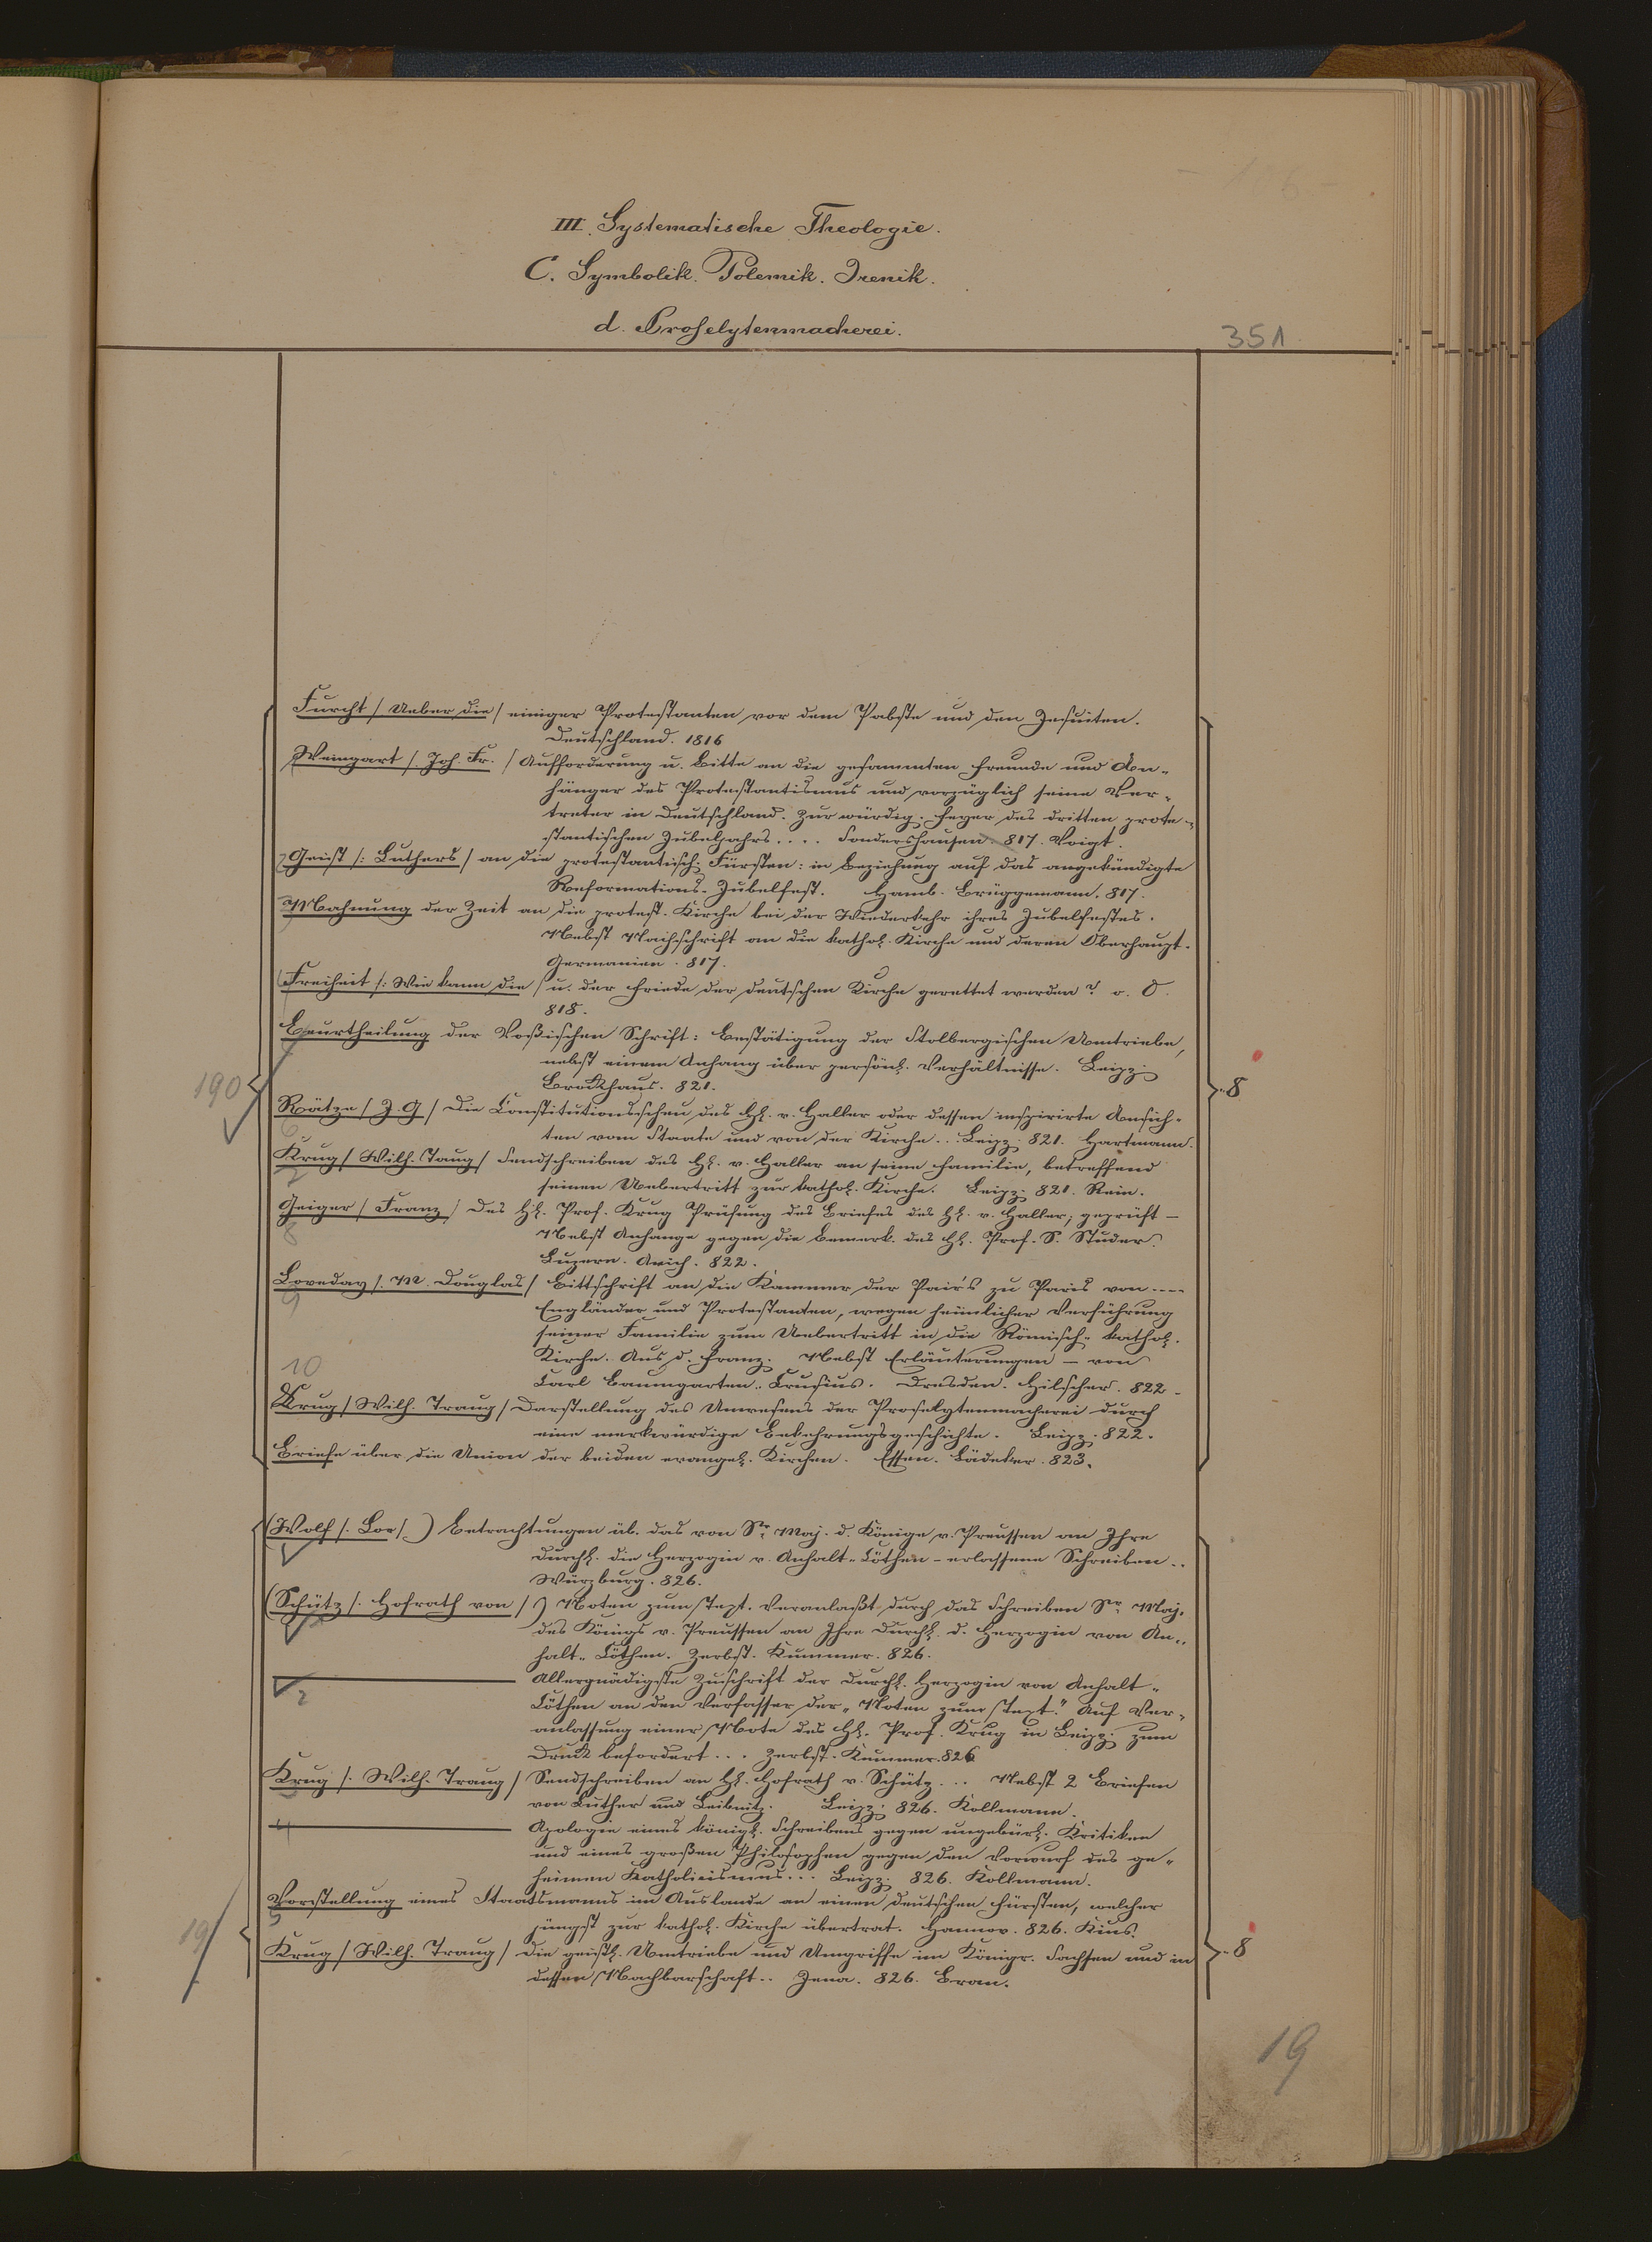 III. Systematische Theologie.
C. Symbolik. Polemik. Irenik.
d. Proselytenmacherei.
351
Furcht /: Ueber die / einiger Protestanten vor dem Pabste und den Jesuiten.
Deutschland. 1816
Weingart /. Joh. Fr. / Aufforderung u. Bitte an die gesammten Freunde und An-
hänger des Protestantismus und vorzüglich seine Ver-
treter in Deutschland. Zur würdig. Feyer des dritten prote-
stantischen Jubeljahrs.... Sondershausen. 817. Voigt.
Geist /: Luthers / an die protestantisch. Fürsten: in Beziehung auf das angekündigte
Reformations-Jubelfest. Hamb. Brüggemann. 817.
Mahnung der Zeit an die protest. Kirche bei der Wiederkehr ihres Jubelfestes.
Nebst Nachschrift an die kathol. Kirche und deren Oberhaupt.
Germanien. 817.
Freiheit /: Wie kann die / u. der Friede der deutschen Kirche gerettet werden? o. O.
818.
Beurtheilung der Voßischen Schrift: Bestätigung der Stolbergischen Umtriebe,
nebst einem Anhang über persönl. Verhältnisse. Leipz.
Brockhaus. 821.
190
8
Rätze / J. G / Die Constitutionsscheu des H. v. Haller oder dessen inspirirte Ansich-
ten vom Staate und von der Kirche... Leipz. 821. Hartmann.
Krug / Wilh. Taug / Sendschreiben des H. v. Haller an seine Familie, betreffend
seinen Uebertritt zur kathol. Kirche. Leipz. 821. Rein.
Geiger / Franz / Des H. Prof. Krug Prüfung des Briefes des H. v. Haller; geprüft –
Nebst Anhange gegen die Bemerk. des H. Prof. S. Studer.
Luzern. Anich. 822.
Loveday /. M. Douglas / Bittschrift an die Kammer der Pairs zu Paris von ----
Engländer und Protestanten, wegen heimlicher Verführung
seiner Familie zum Uebertritt in die Römisch-kathol.
Kirche. Aus d. Franz. Nebst Erläuterungen – von
10
Carl Baumgarten-Crusius. Dresden. Hilscher. 822.
Krug / Wilh. Traug / Darstellung des Unwesens der Proselytenmacherei durch
eine merkwürdige Bekehrungsgeschichte. Leipz. 822.
Briefe über die Union der beiden evangel. Kirchen. Essen. Bädeker. 823.
(Wolf /. Lor /.) Betrachtungen üb. das von Sr. Maj. d. Könige v. Preussen an Ihre
Durchl. die Herzogin v. Anhalt-Cöthen – erlassene Schreiben..
Würzburg. 826.
(Schütz /. Hofrath von /) Noten zum Text. Veranlaßt durch das Schreiben Sr. Maj.
des Königs v. Preussen an Ihre Durchl. d. Herzogin von An-
halt-Cöthen. Zerbst. Kummer. 826.
——— Allergnädigste Zuschrift der Durchl. Herzogin von Anhalt-
2
Cöthen an den Verfasser der "Noten zum Text." Auf Ver-
anlassung einer Note des H. Prof. Krug in Leipz. zum
Druck befordert... Zerbst. Kummer. 826
Krug /. Wilh. Traug / Sendschreiben an H. Hofrath v. Schütz... Nebst 2 Briefen
von Luther und Leibnitz. Leipz. 826. Kollmann.
——— Apologie eines königl. Schreibens gegen ungebürl. Kritiken
und eines großen Philosophen gegen den Vorwurf des ge-
heimen Katholicismus... Leipz. 826. Kollmann.
Vorstellung eines Staatsmanns im Auslande an einen deutschen Fürsten, welcher
jüngst zur kathol. Kirche übertrat. Hannov. 826. Kius.
191
8
Krug / Wilh. Traug / Die geistl. Umtriebe und Umgriffe im Königr. Sachsen und in
dessen Nachbarschaft.. Jena. 826. Bran.
19